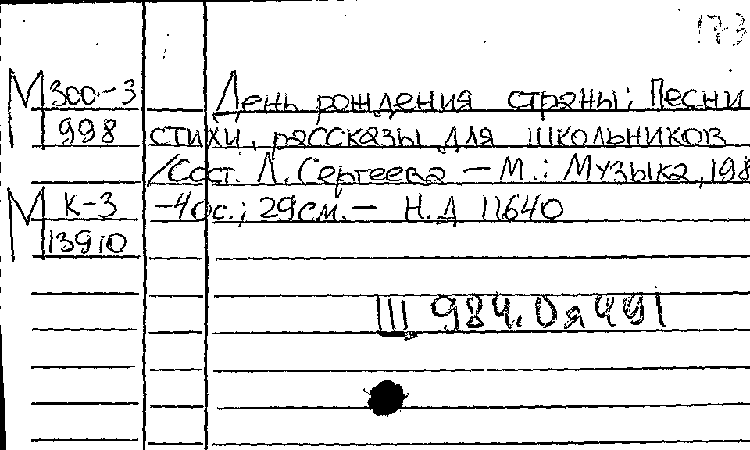 173
М 300-3 День рождения страны: Песни
998 стихи, рассказы для школьников
/Сост. Л. Сергеева - М.: Музыка, 198
М К-3 -40с.; 29см. - Н.Д 11640
13910
Щ 984.0я441